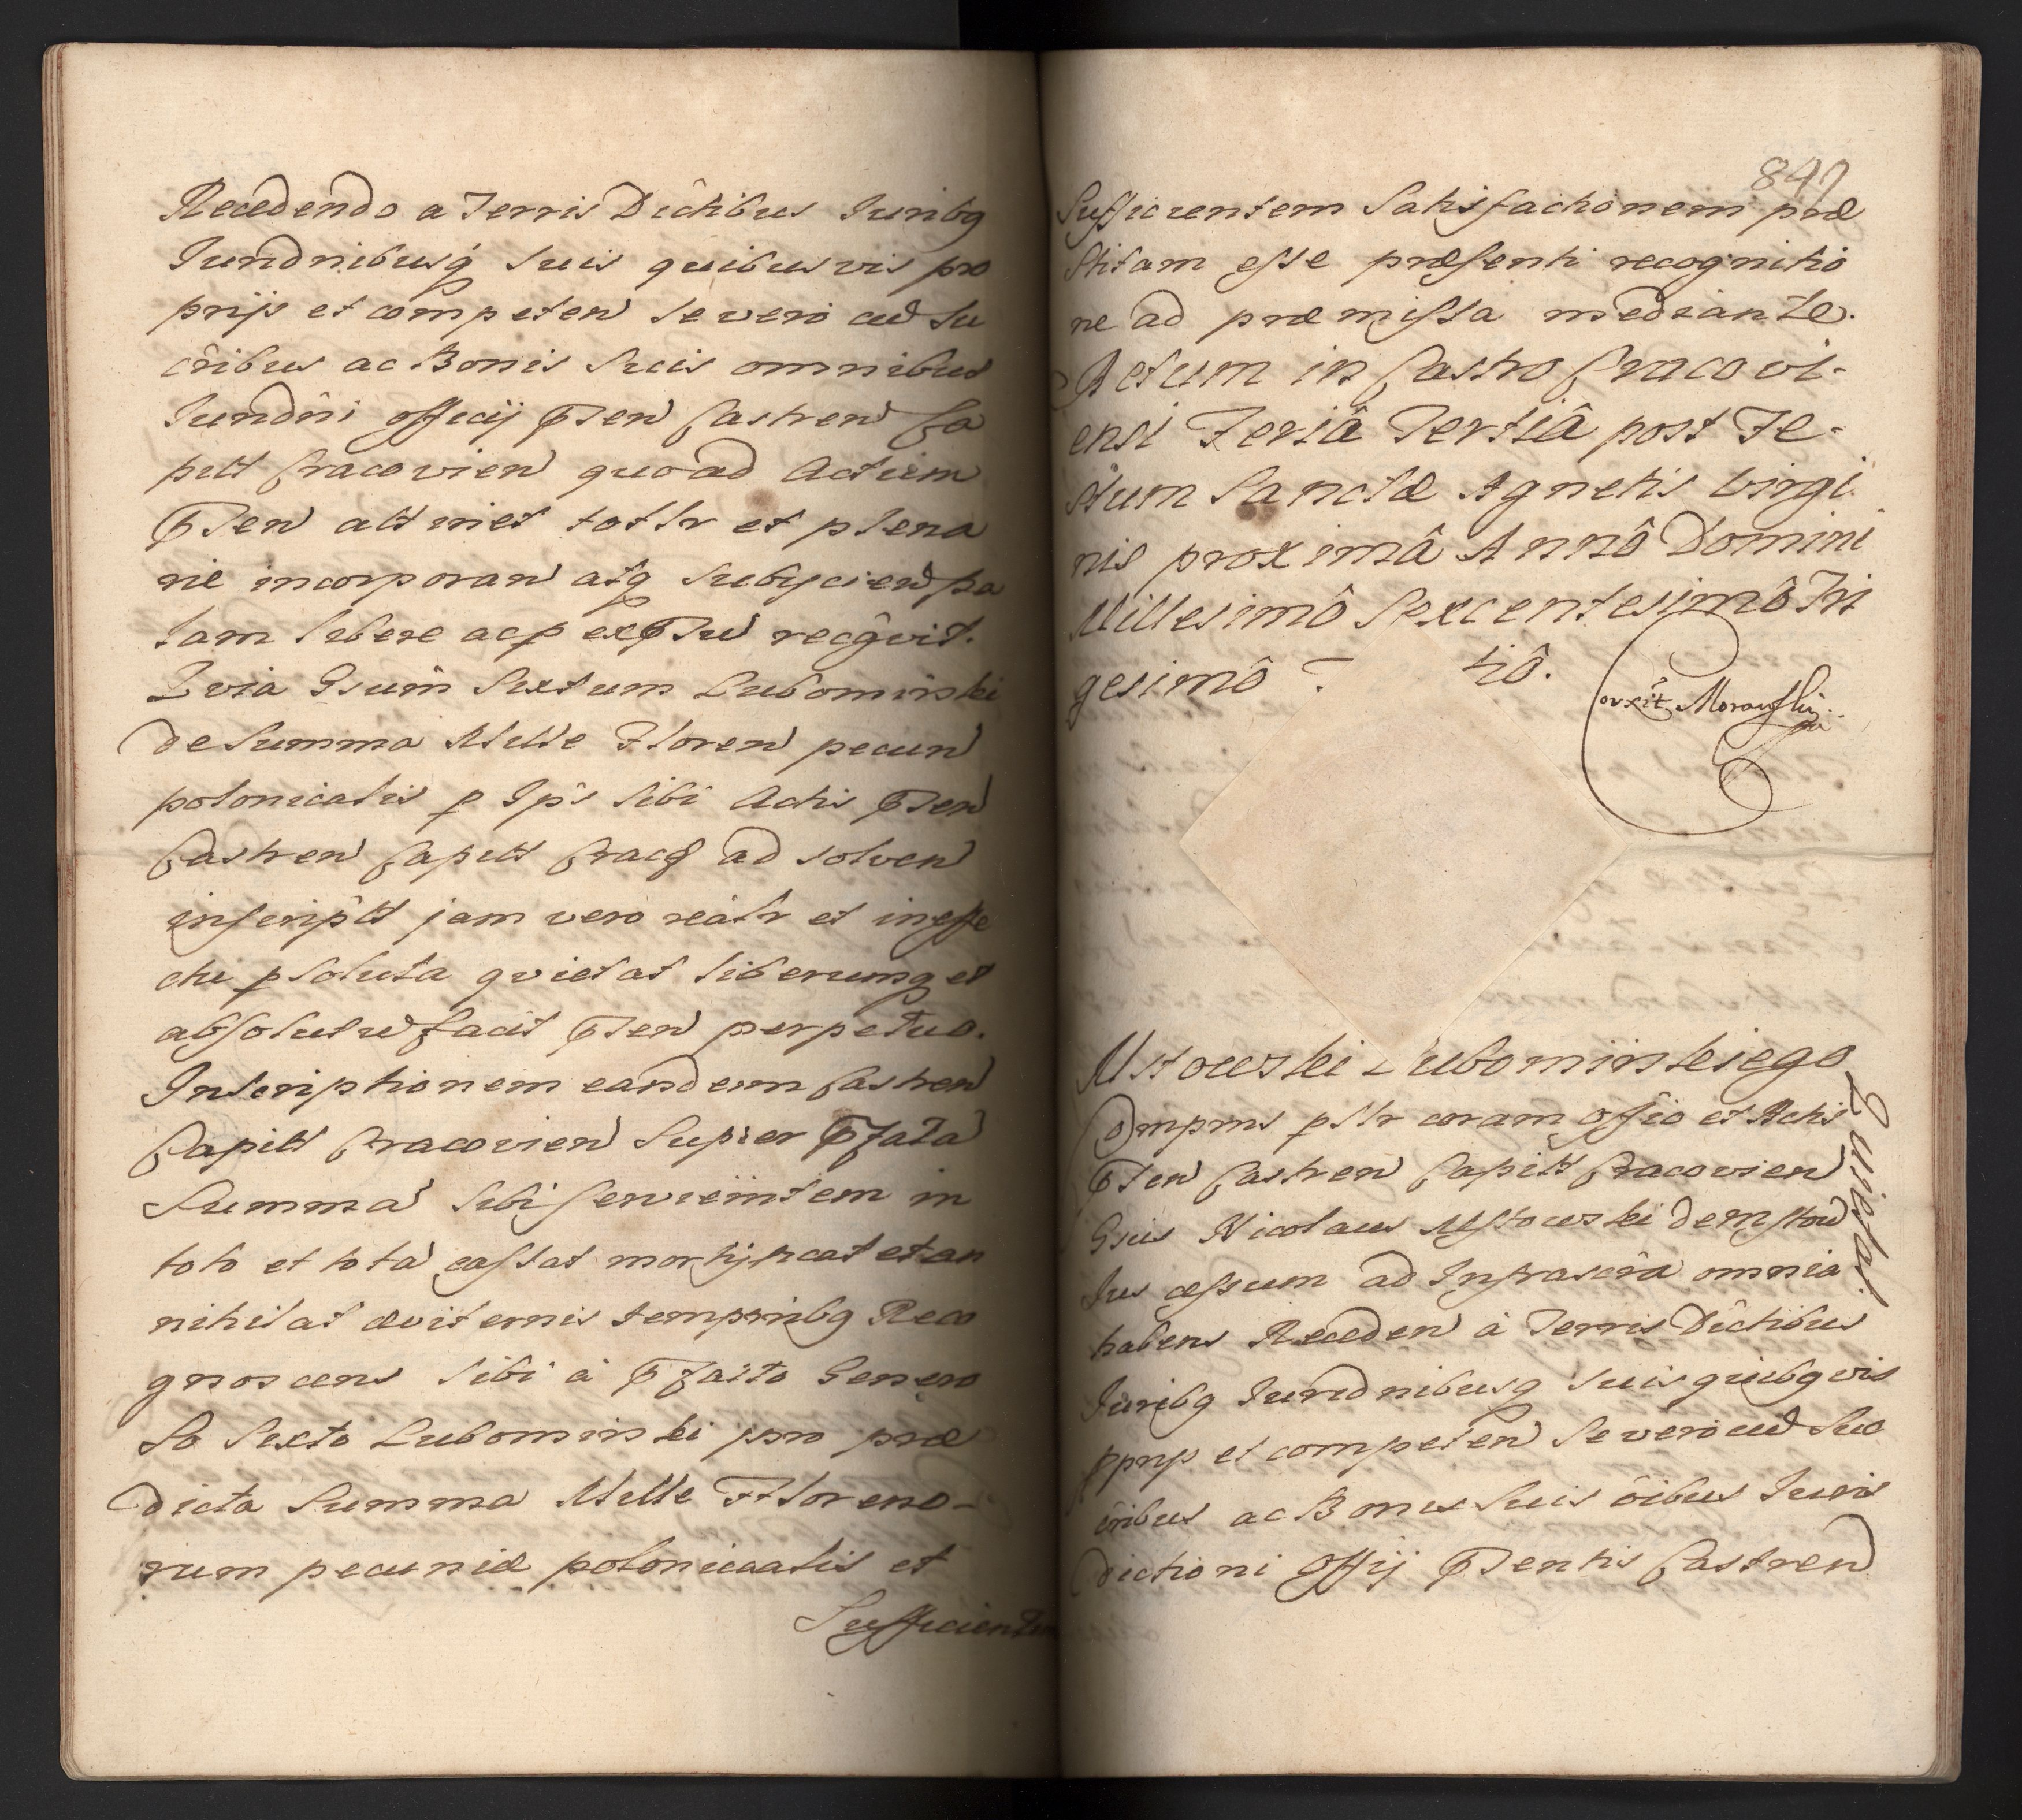 Recedendo a Terris Dictibus Juribq
Jurdnibusq suis quibusvis pro
prijs et competen se vero cud su
cribus ac Bonis suis omnibus
Jurdni officij Pnen Castren Ca
pitt Cracovien quoad Actum
Pnen att niet tottr et plena
rie incorporan atq subijcien pa
lam libere acp exPsu recgvit.
Qvia Gsum Sixtum Lubominski
de Summa Mille Floren pecun
polonicalis p Ips sibi Actis Pnen
Castren Capitt Crac ad solven
inscriptt jam vero realr et in effe
ctu psoluta qvietat liberumq et
absolutu facit Pnen perpetuo.
Inscriptionem eandem Castren
Capitt Cracovien Super Pfata
Summa sibi servientem in
toto et tota cassat mortificat et an
nihilat æviternis temporibq Reco
gnoscens sibi à Pfatto Genero
so Sixto Lubominski pro præ
dicta Summa Mille Floreno-
rum pecuniæ polonicalis et
Sufficientem
847
Sufficientem Satisfactionem præ
stitam esse præsenti recognitio
ne ad præmissa mediante.
Actum in Castro Cracovi-
ensi Feriâ Tertiâ post Fe-
stum Sanctæ Agnetis Virgi
nis proximâ Annô Domini
Millesimô Sexcentesimô Tri
gesimô Ter tiô.
Corxit Morawski
Mstowski Lubominskiego
Quietat
Compns psltr coram offio et Actis
Pnen Castren Capitt Cracovien
Gsus Nicolaus Mstowski de Mstow
Jus cessum ad Infrascra omnia
habens Receden à Terris Dictibus
Juribq Jurednibusq suis quibqvis
pprijs et competen se vero cud suc
cribus ac Bonis suis oibus Juris
dictioni Offij Pnentis Castren